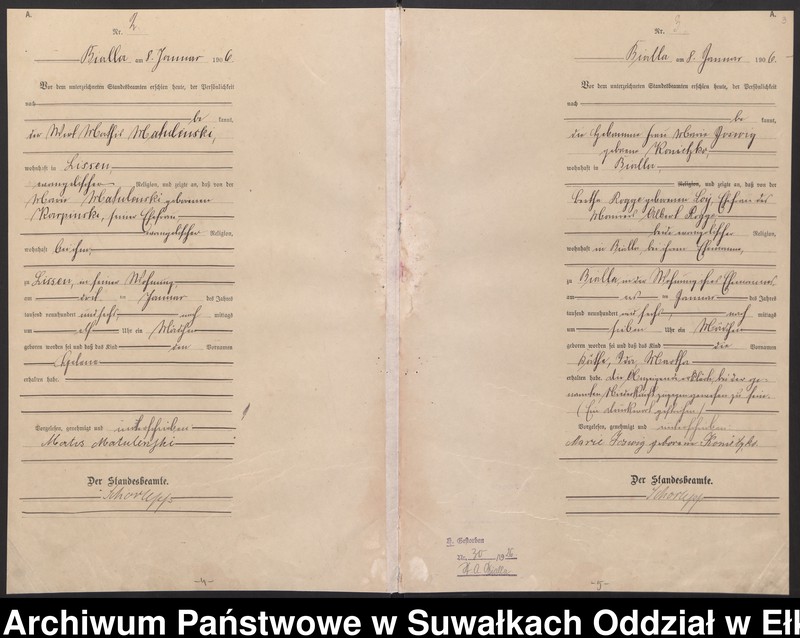 A.
Nr. 2
Bialla am 8. Januar 1906.
Vor dem unterzeichneten Standesbeamten erschien heute, der Persönlichkeit
nach
be kannt,
der Wirt Mathes Matulinski,
wohnhaft in Lissen,
evangelischer Religion, und zeigte an, daß von der
Marie Matulinski geborenen
Karpinski, seiner Ehefrau,
evangelischer Religion,
wohnhaft bei ihm,
zu Lissen, in seiner Wohnung,
am drei ten Januar des Jahres
tausend neunhundert und sechs nach mittags
um elf Uhr ein Mädchen
geboren worden sei und daß das Kind den Vornamen
Helene
erhalten habe.
Vorgelesen, genehmigt und unterschrieben
Mates Matulinski
Der Standesbeamte.
-4-
A.
3
Nr. 3
Bialla am 8. Januar 1906.
Vor dem unterzeichneten Standesbeamten erschien heute, der Persönlichkeit
nach
be kannt,
die Hebamme Frau Marie
geborene
wohnhaft in Bialla,
Religion, und zeigte an, daß von der
Rogge geborenen Ehefrau des
Albert Rogge,
beide evangelischer Religion,
wohnhaft in Bialla, bei ihrem Ehemanne,
zu Bialla, in der Wohnung ihres Ehemannes
am ten Januar des Jahres
tausend neunhundert und sechs nach mittags
um sieben Uhr ein Mädchen
geboren worden sei und daß das Kind die Vornamen
Käthe, Ida, Martha
erhalten habe. Die Anzeigende erklärt, bei der ge-
nannten Niederkunft zugegen gewesen zu sein.
(Ein Druckwort gestrichen)
Vorgelesen, genehmigt und unterschrieben
Marie geborene
Der Standesbeamte.
G. Gestorben
Nr. 30
St. A. Bialla
-5-
Archiwum Państwowe w Suwałkach Oddział w Eł